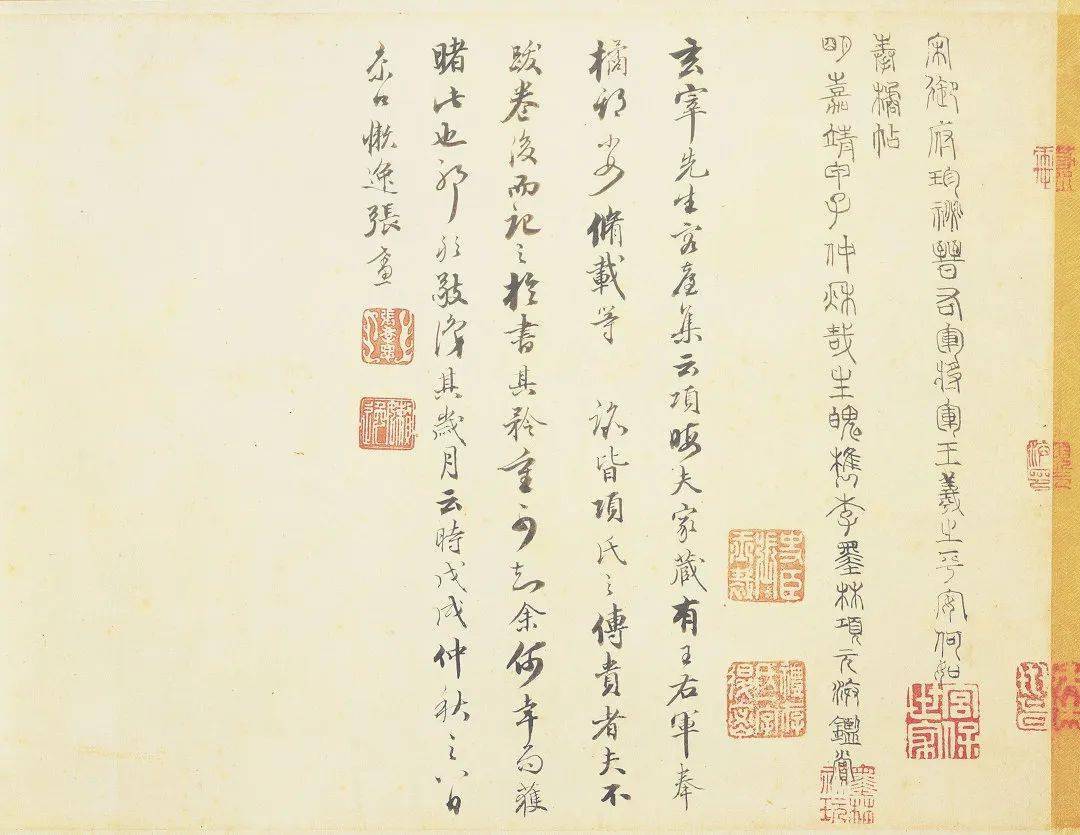 宋御府珍祕晉右軍將軍王羲之平安何如
奉橘帖
明嘉靖甲子仲秋哉生魄檇李墨林項元汴鑑賞
玄宰先生容臺集云項晦夫家藏有王右軍奉
橘少脩載等皆項氏之傳貴者夫不
跋卷後而記之於書其矜重可知余何幸而獲
睹此也耶敬識其歲月云時戊戌仲秋之八日
京口懶逸張
宮保世家
墨林祕玩
張孝思
懶逸